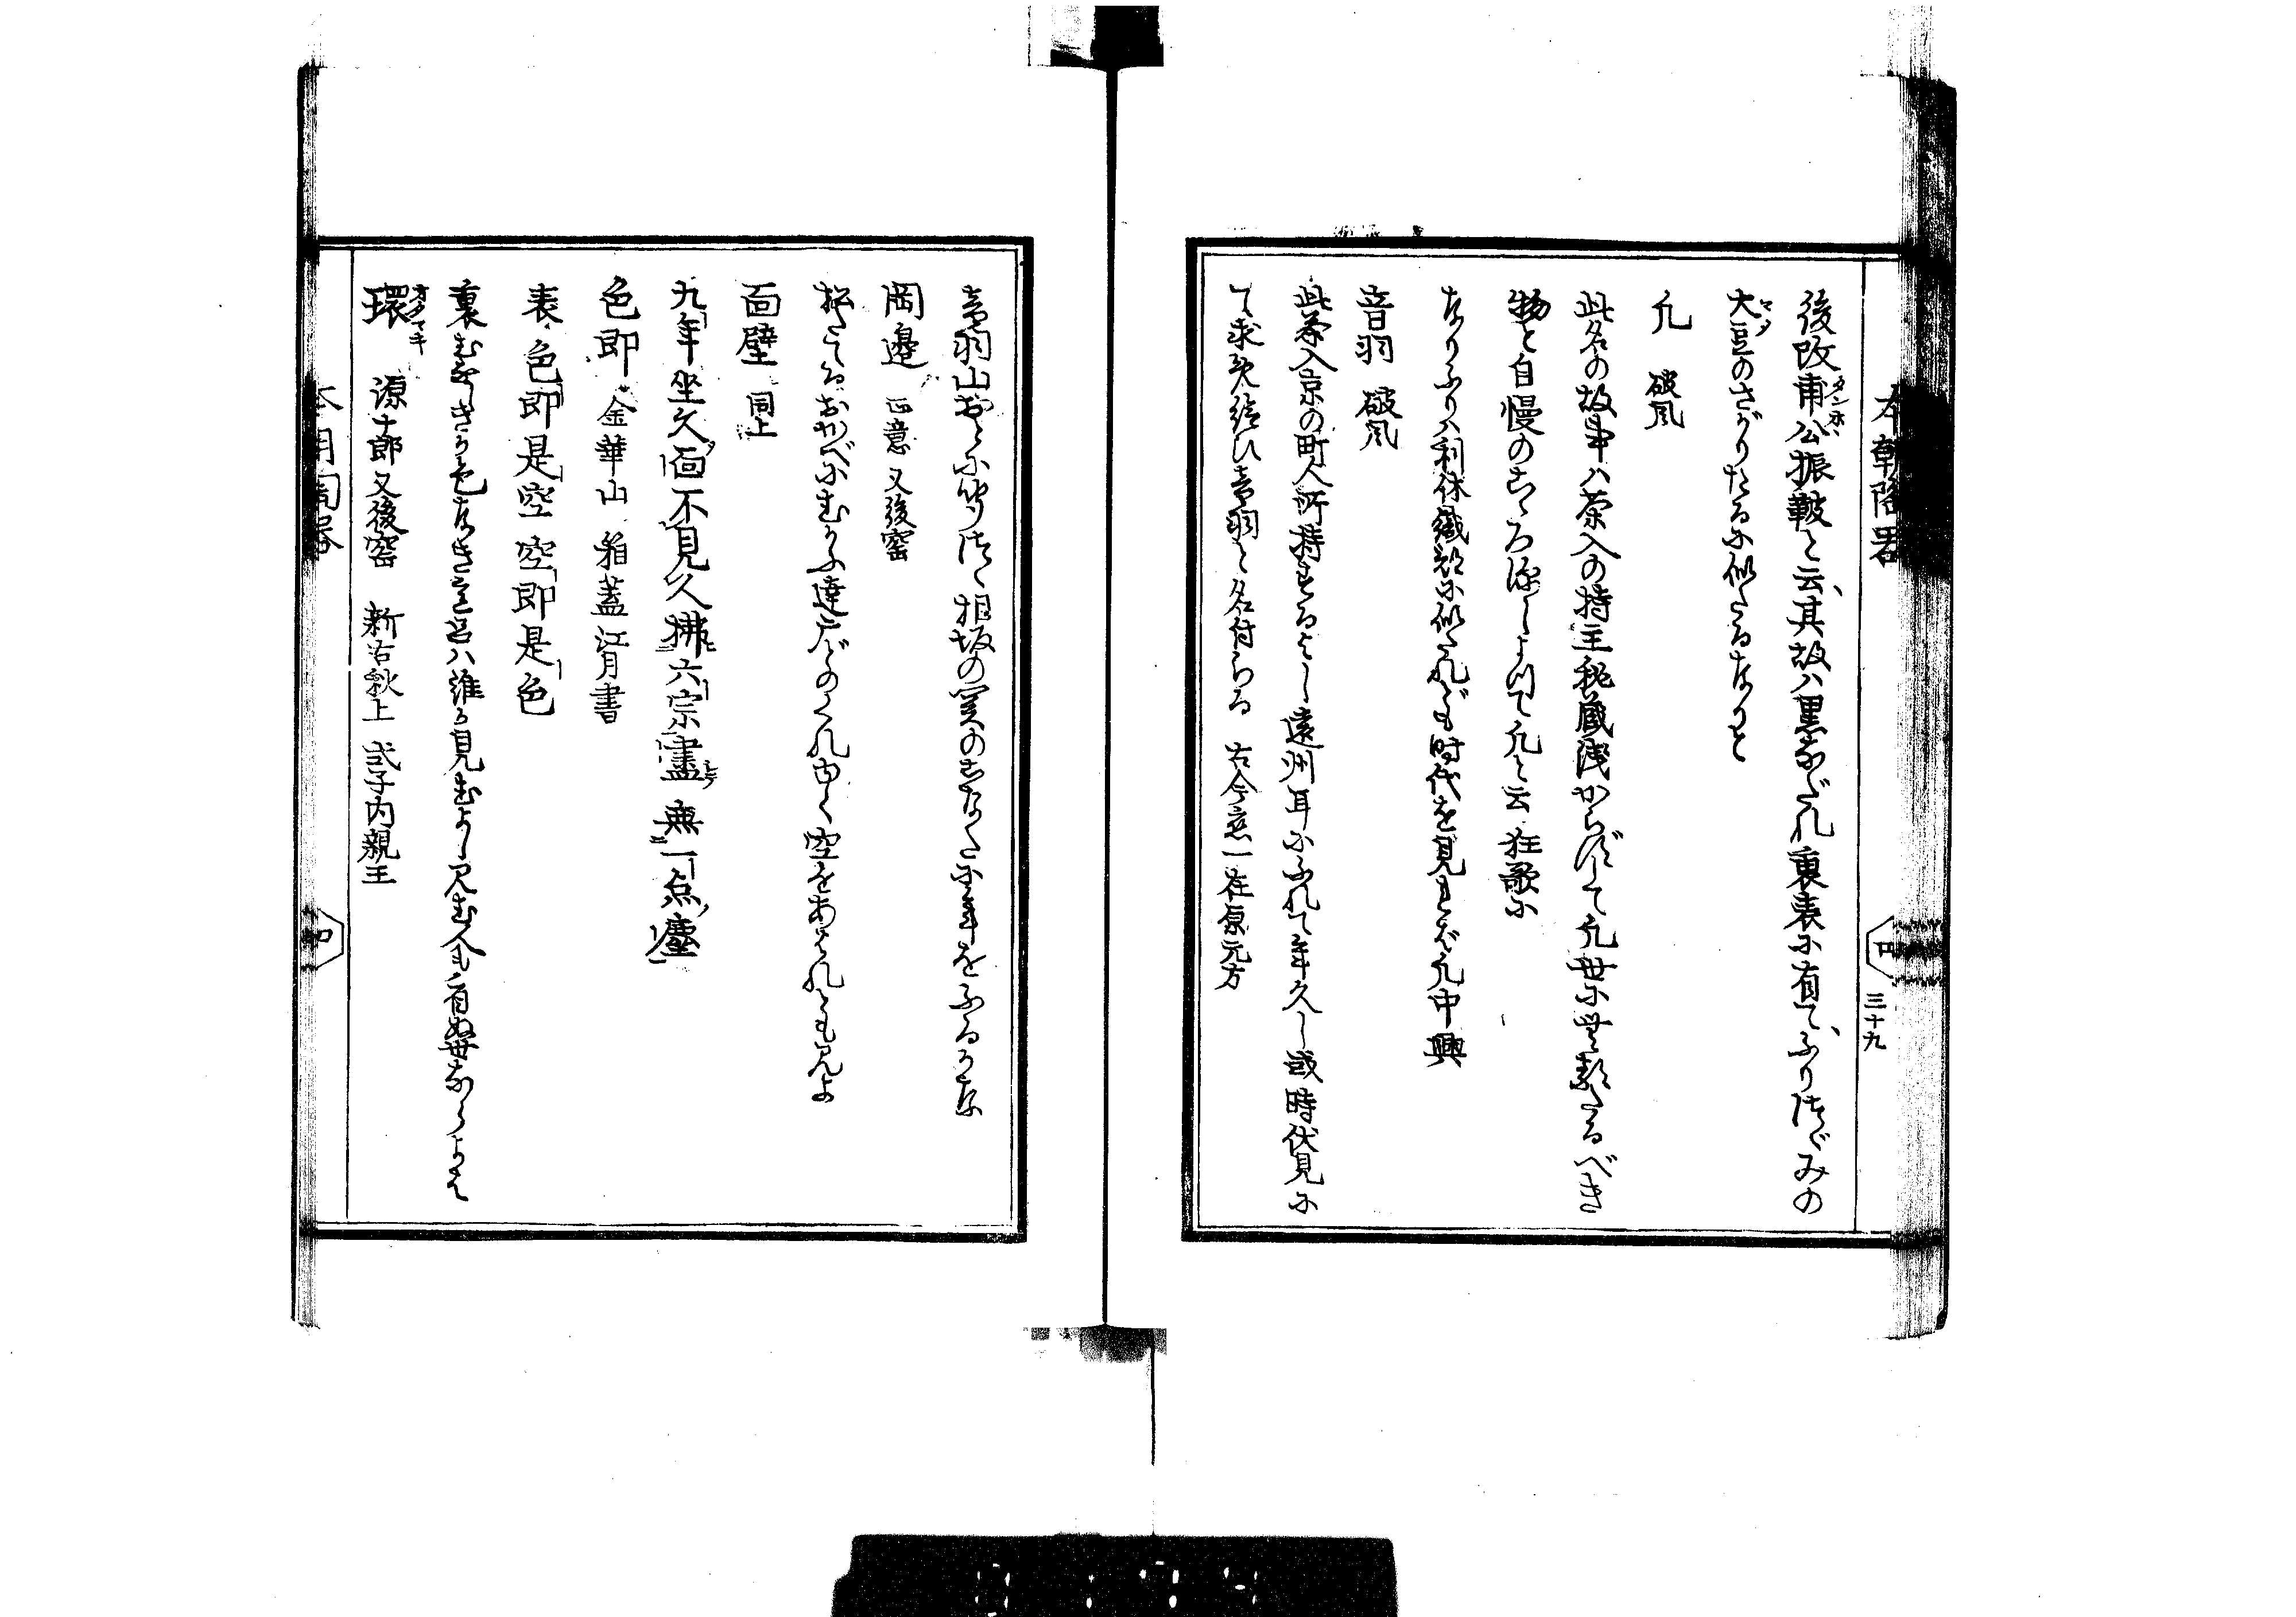 本朝陶器 四 三十九
後改蒲公振鞁と云、其故ハ黒なだれ裏表に有て、ふりつゞみの
タンホヽ
大豆のさがりたるに似たるなりと
マメ
凢 破風
此名の故事ハ茶入の持主秘蔵浅からずして凢世に無類たるべき
物と自慢のこゝろ深しよつて凢と云 狂歌に
なりふりハ利休織部に似たれども時代を見れば凢中興
音羽 破風
此茶入京の町人所持するよし遠州耳にふれて年久し或時伏見に
て求め給ひ音羽と名付らる 古今恋一在原元方
音羽山おとに聞つゝ相坂の関のこなたに年をふるかな
岡邊 正意又後窑
松たてるおかべにむかふ達广どのくれゆく空をあはれとも見よ
面壁 同上
九年坐久面不見久拂六宗盡無一点塵
色即 金華山 箱蓋江月書
表 色即是空 空即是色
裏 むなしきを色なき
環 源十郎又後窑 新古秋上 式子内親王
オダマキ
本朝陶器 四